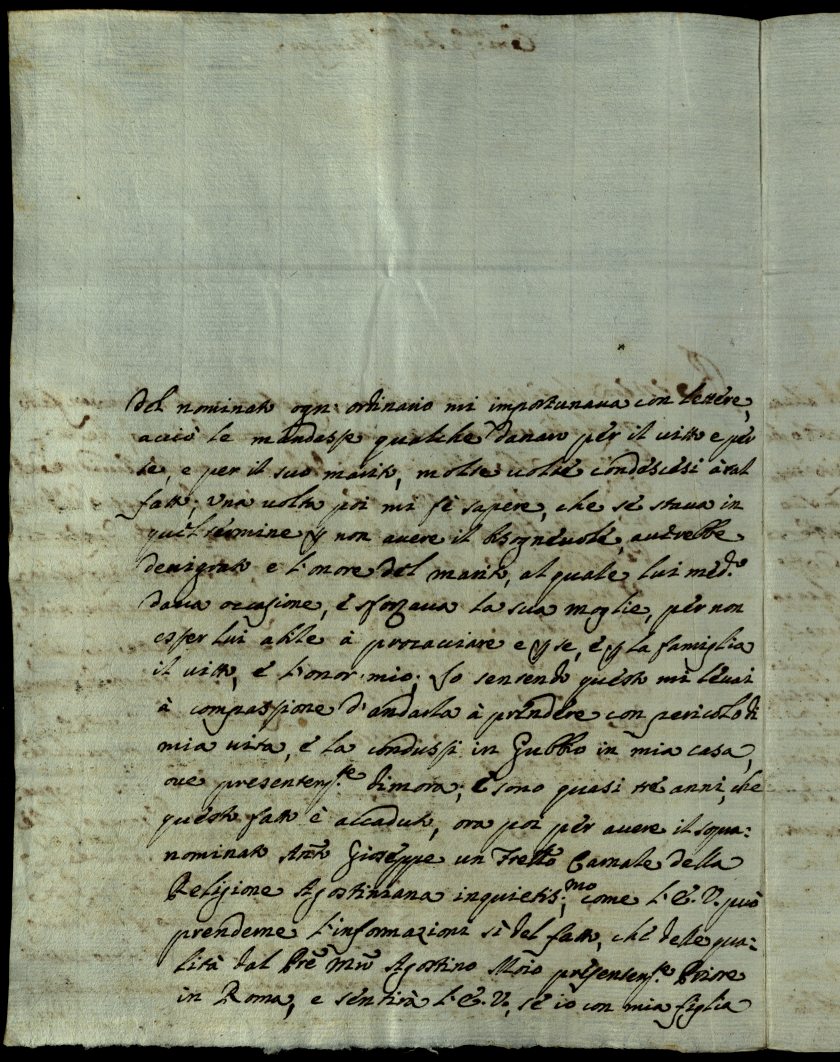 del nominato ogni ordinario mi importunava con lettere,
acciò le mandasse qualche danaro per il vitto e per
se, e per il suo marito, molte volte condescesi à tal
fatto; una volta poi mi fè sapere, che se stava in
quel termine p non avere il bisognevole, avrebbe
denigrato e l'onore del marito, al quale lui med.o
dava occasione, e sforzava la sua moglie, per non
esser lui abile à procacciare e p se, e p la famiglia
il vitto, e l'onor mio; Io sentendo questo mi levai
à compassione d'andarla à prendere con pericolo di
mia vita, e la condussi in Gubbio in mia casa,
ove presentem.te dimora; e sono quasi trè anni, che
questo fatto è accaduto, ora poi per avere il sopra:
nominato Ant.o Gioseppe un Fratello Carnale della
Religione Agostiniana inquietis:mo, come l'E.V. può
prenderne l'informazioni sì del fatto, che delle qua:
lità dal Pre Mro Agostino Moio presentem.te Priore
in Roma, e sentirà l'E.V. se iò con mia figlia